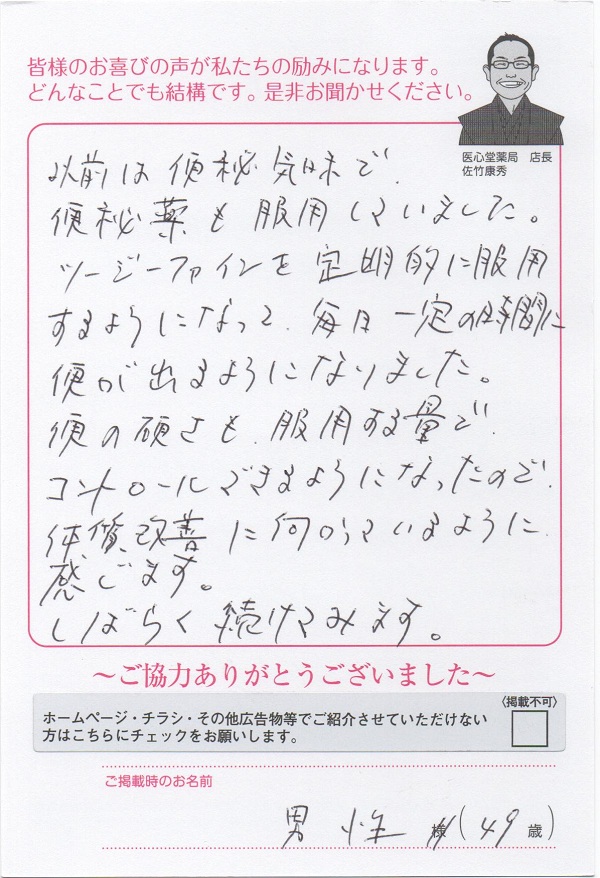 皆様のお喜びの声が私たちの励みになります。
どんなことでも結構です。是非お聞かせください。
医心堂薬局 店長
佐竹康秀
以前は便秘気味で、
便秘薬も服用していました。
ツージーファインを定期的に服用
するようになって、毎日一定の時間に
便が出るようになりました。
便の硬さも、服用する量で、
コントロールできるようになったので、
体質改善に向かっているように、
感じます。
しばらく続けてみます。
〜ご協力ありがとうございました〜
〈掲載不可〉
ホームページ・チラシ・その他広告物等でご紹介させていただけない
方はこちらにチェックをお願いします。
ご掲載時のお名前
男性 様(49歳)